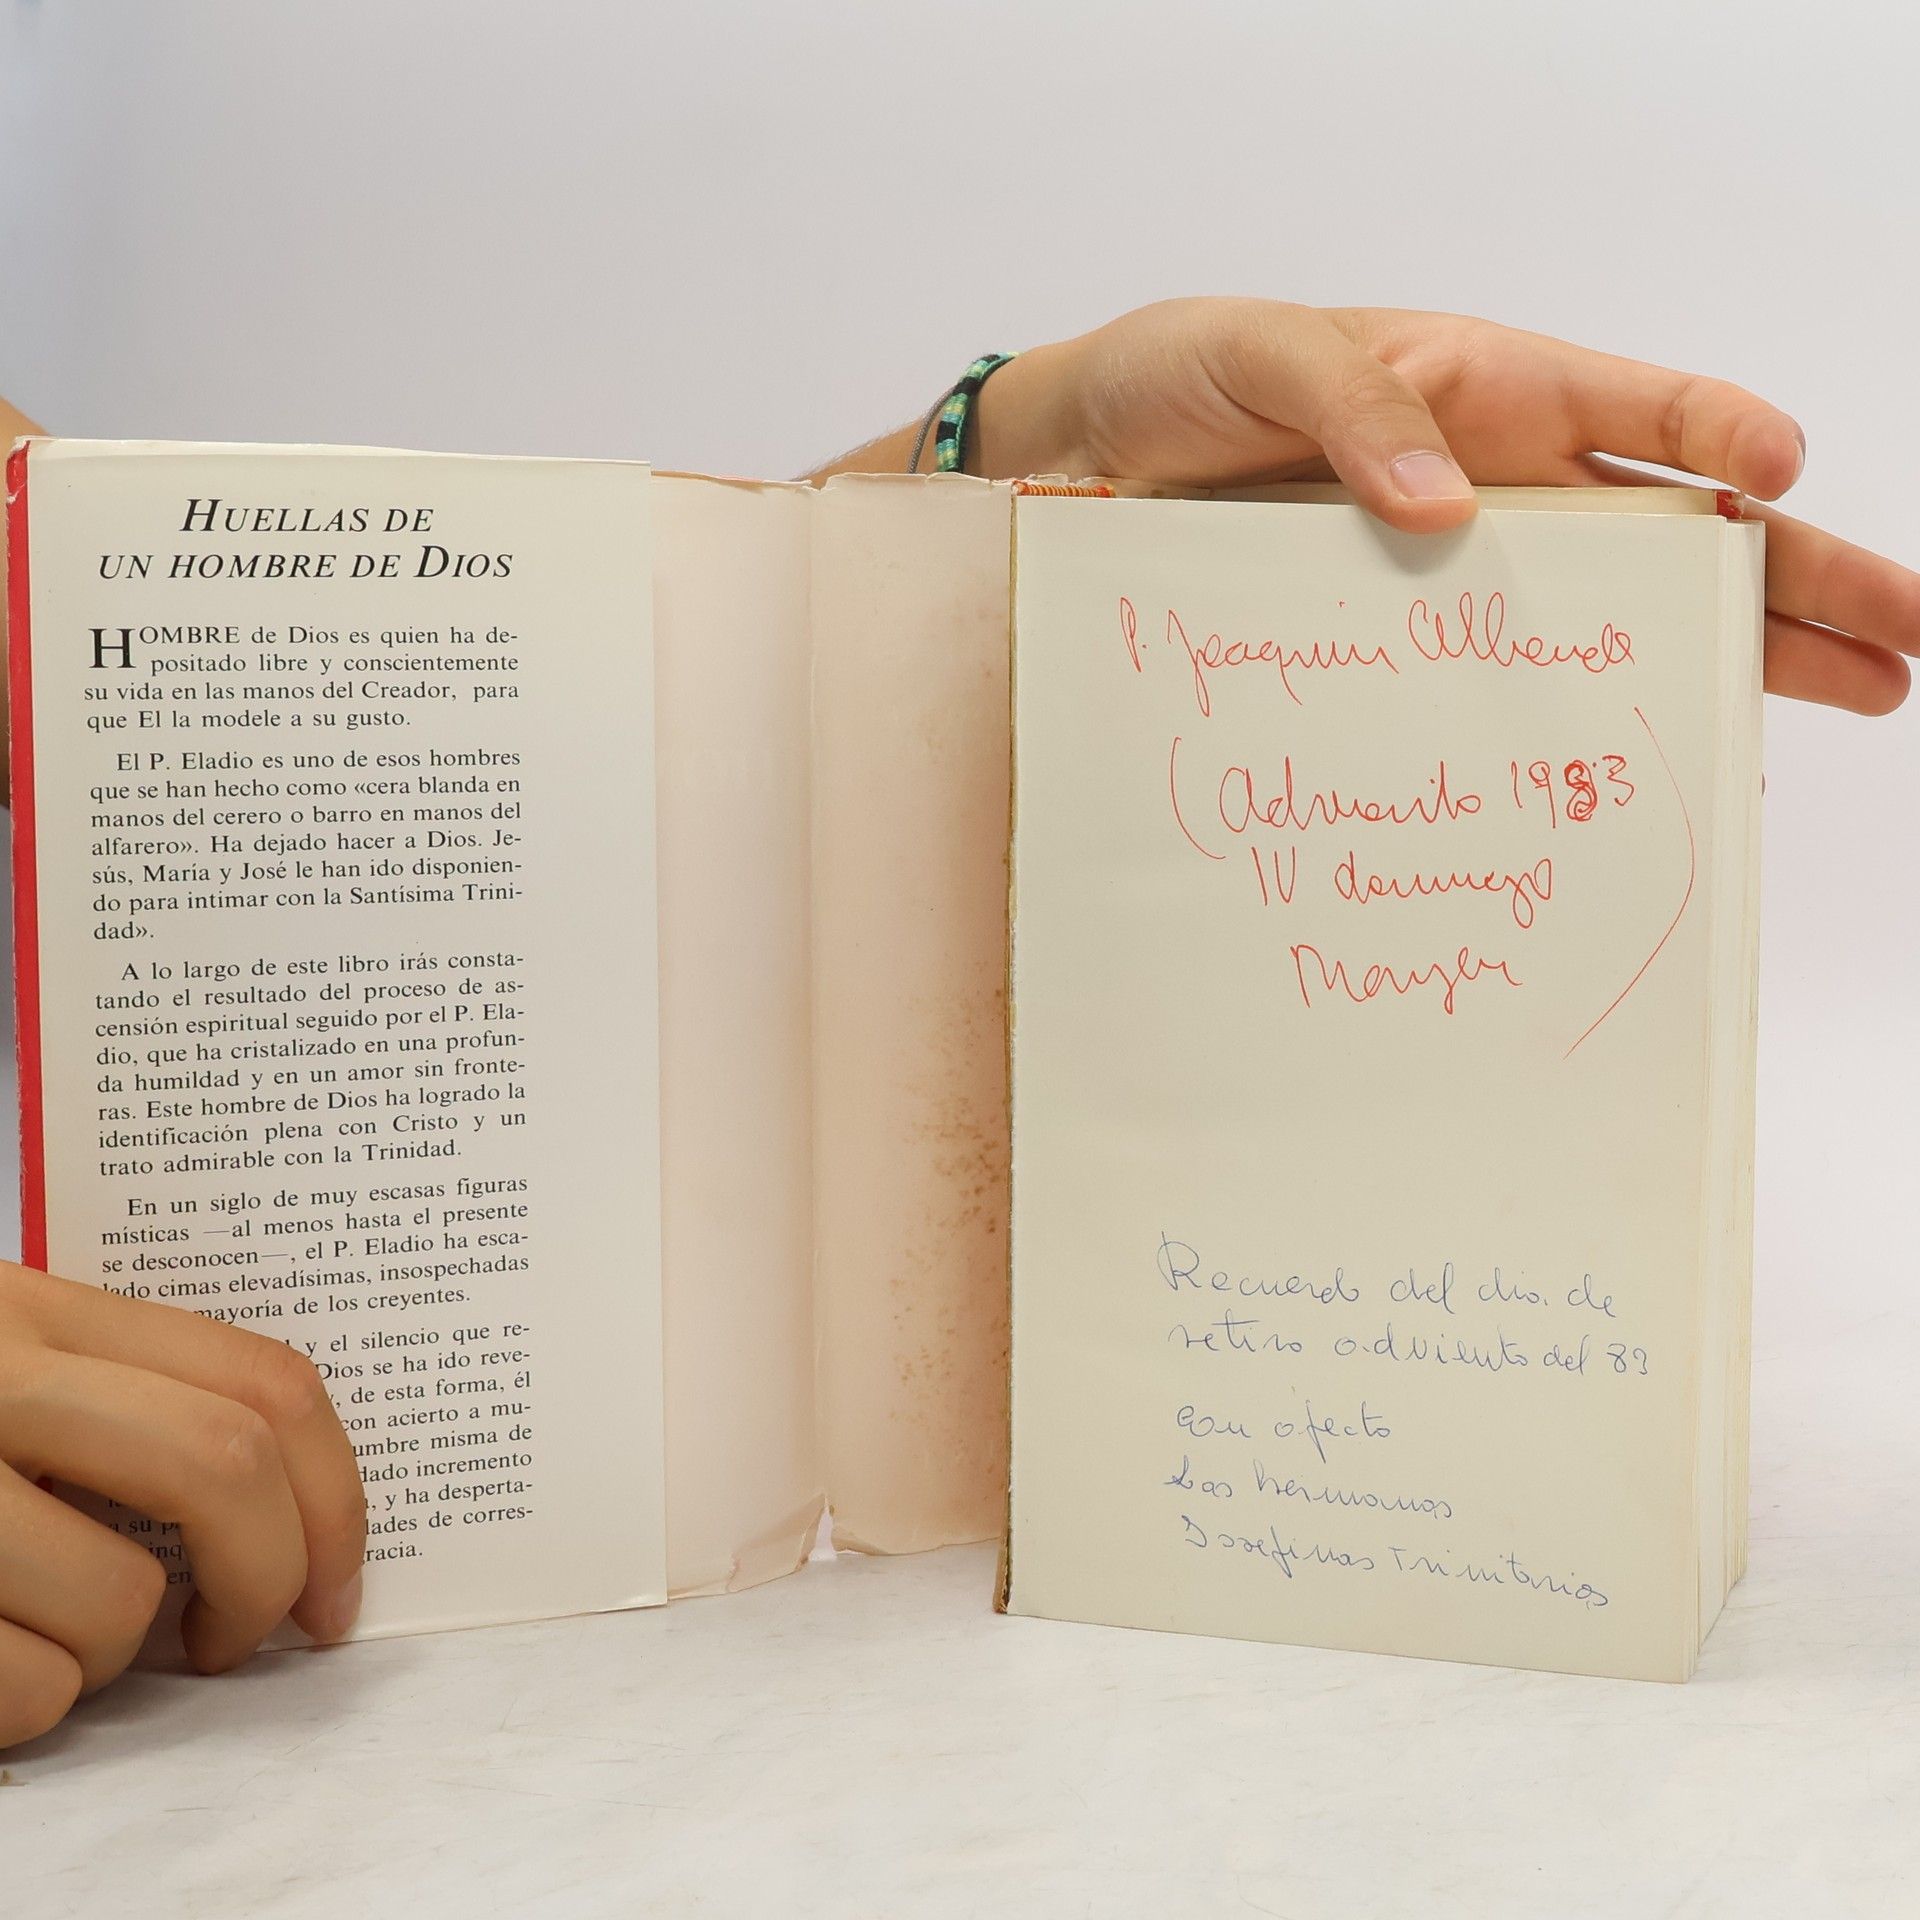 HUELLAS DE
UN HOMBRE DE DIOS
HOMBRE de Dios es quien ha de-
positado libre y conscientemente
su vida en las manos del Creador, para
que El la modele a su gusto.
El P. Eladio es uno de esos hombres
que se han hecho como «cera blanda en
manos del cerero o barro en manos del
alfarero». Ha dejado hacer a Dios. Je-
sús, María y José le han ido disponien-
do para intimar con la Santísima Trini-
dad».
A lo largo de este libro irás consta-
tando el resultado del proceso de as-
censión espiritual seguido por el P. Ela-
dio, que ha cristalizado en una profun-
da humildad y en un amor sin fronte-
ras. Este hombre de Dios ha logrado la
identificación plena con Cristo y un
trato admirable con la Trinidad.
En un siglo de muy escasas figuras
místicas —al menos hasta el presente
se desconocen—, el P. Eladio ha esca-
lado cimas elevadísimas, insospechadas
mayoría de los creyentes.
y el silencio que re-
Dios se ha ido reve-
, de esta forma, él
con acierto a mu-
umbre misma de
dado incremento
, y ha desperta-
lades de corres-
racia.
P. Joaquin Allende
(Adviento 1983
IV domingo
)
Recuerdo del dia de
retiro adviento del 83
con afecto
Las hermanas
Josefinas Trinitarias